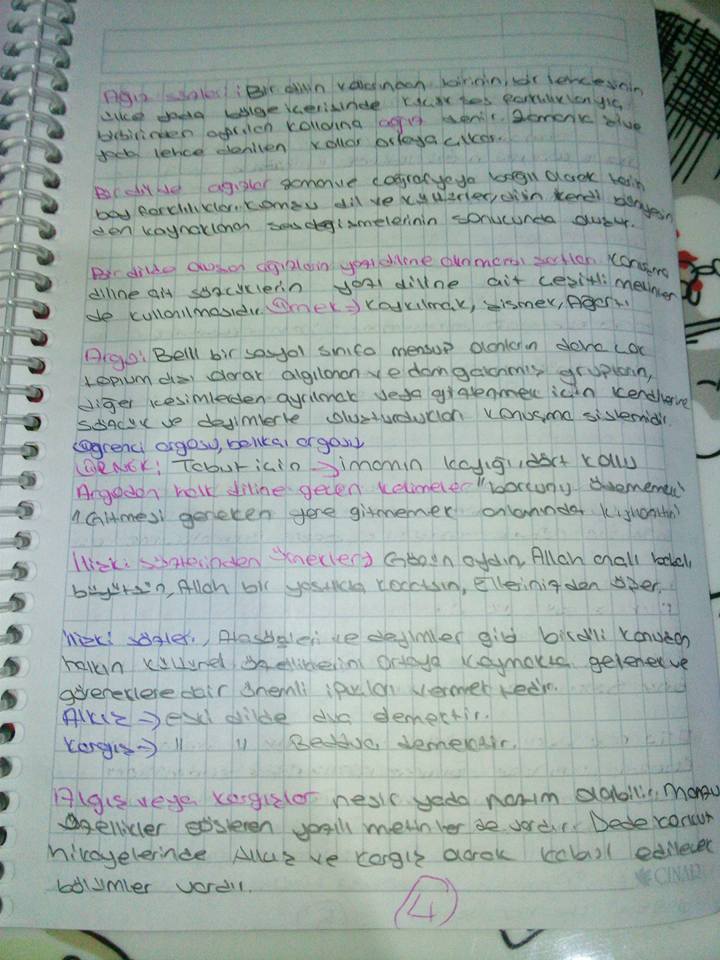 Ağız sözleri: Bir dilin kollarından birinin, bir lehçesinin
ülke yada bölge içerisinde küçük ses farklılıklarıyla
birbirinden ayrılan kollarına ağız denir. Zamanla şive
yada lehce denilen kollar ortaya çıkar.
Bir dilde ağızlar zaman ve coğrafyaya bağlı olarak
boy farklılıkları, komşu dil ve kültürler, dilin kendi bünyesin
den kaynaklanan ses değişmelerinin sonucunda oluşur.
Bir dilde oluşan ağızların yazı diline alınması Konuşma
diline ait sözcüklerin yazı diline ait çeşitli metinler
de kullanılmasıdır. Örnek → Kaykılmak, sismek,
Argo: Belli bir sosyal sınıfa mensup olanların daha çok
toplum dışı olarak algılanan ve damgalanmış grupların,
diğer kesimlerden ayrılmak veya gizlenmek için kendilerine
sözcük ve deyimlerle oluşturdukları konuşma sistemidir.
öğrenci argosu, balıkçı argosu
ÖRNEK: Tabut için → imamın kayığı, dört kollu
Argodan halk diline geçen kelimeler "
"Gitmesi gereken yere gitmemek anlamında
İlişki sözlerinden örnekler → Gözün aydın, Allah analı babalı
büyütsün, Allah bir yastıkta kocatsın, Ellerinizden öper,
İlişki sözleri, Atasözleri ve deyimler gibi bir dili konuşan
halkın kültürel özelliklerini ortaya koymakta gelenek ve
göreneklere dair önemli ipuçları vermektedir.
Alkış → eski dilde dua demektir.
Kargış → " " Beddua demektir.
Algış veya kargışlar nesir yada nazım olabilir. Manzum
özellikler gösteren yazılı metinler de vardır. Dede Korkut
hikayelerinde Alkış ve Kargış olarak kabul edilecek
bölümler vardır.
4